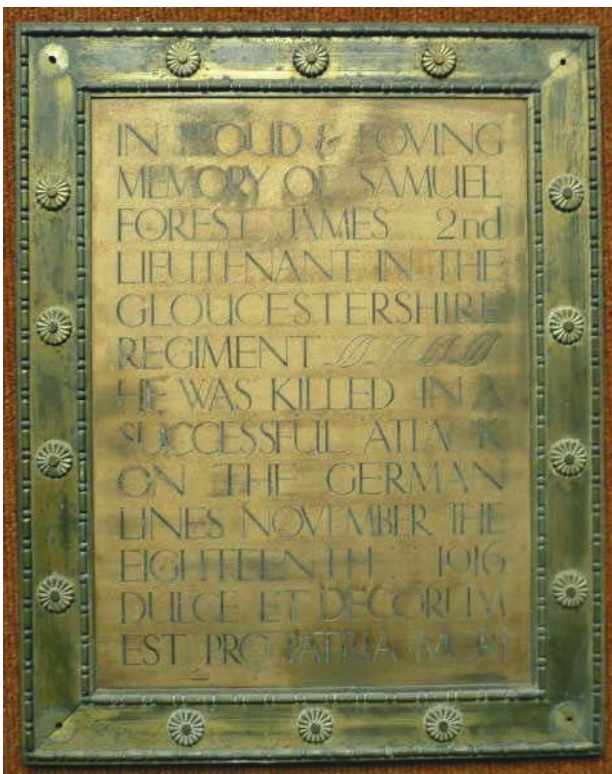 IN PROUD & LOVING
MEMORY OF SAMUEL
FOREST JAMES 2nd
LIEUTENANT IN THE
GLOUCESTERSHIRE
REGIMENT
HE WAS KILLED IN A
SUCCESSFUL ATTACK
ON THE GERMAN
LINES NOVEMBER THE
EIGHTEENTH 1916
DULCE ET DECORUM
EST PRO PATRIA MORI